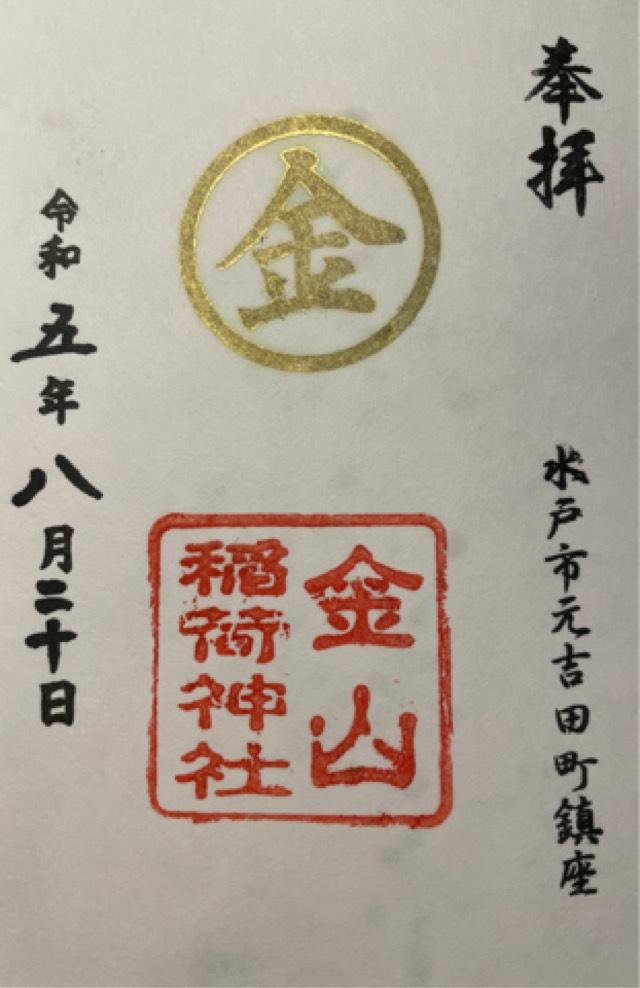 奉拝
水戸市元吉田町鎮座
金
金山
稲荷神社
令和五年八月二十日